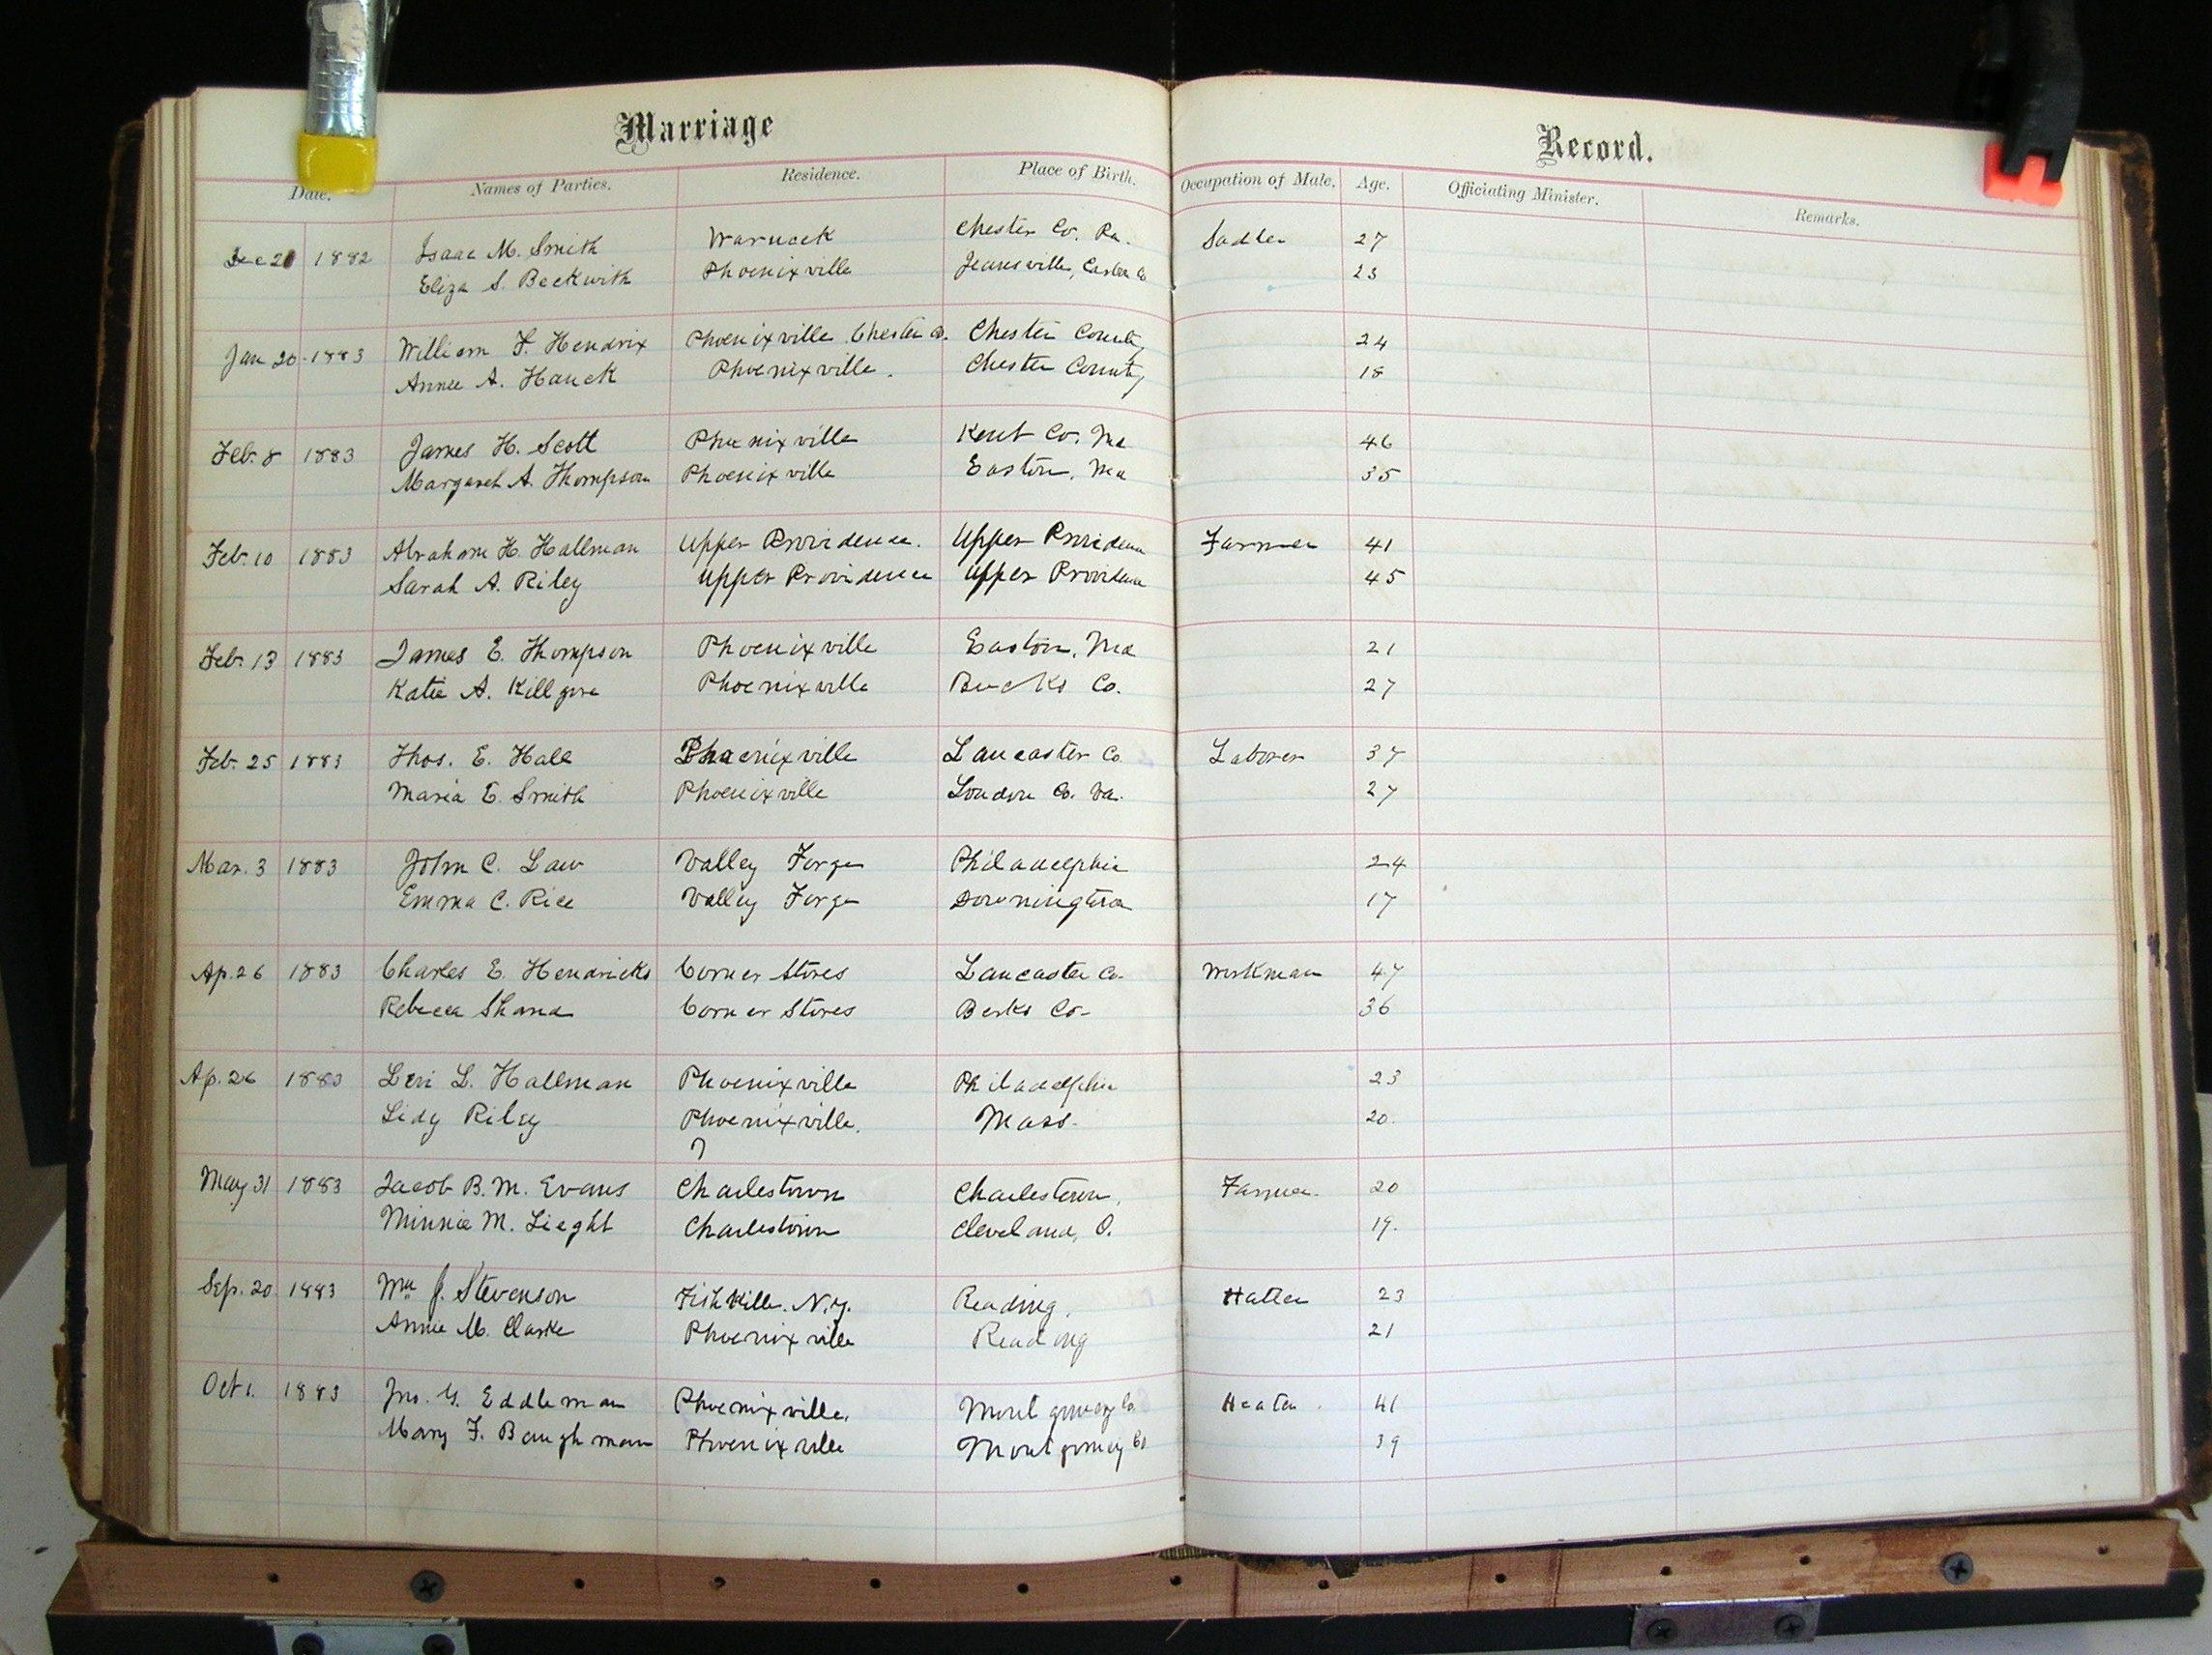 Marriage Record.
Date. Names of Parties. Residence. Place of Birth. Occupation of Male. Age. Officiating Minister. Remarks.
Dec 21 1882 Isaac M. Smith Warwick Chester Co. Pa. Sadler 27
Eliza S. Beckwith Phoenixville Jeansville, Carbon Co 23
Jan 20 1883 William F. Hendrix Phoenixville Chester Co. Chester County 24
Annie A. Hauck Phoenixville. Chester County 18
Feb. 8 1883 James H. Scott Phoenixville Kent Co. Md 46
Margaret A. Thompson Phoenixville Easton, Md 35
Feb. 10 1883 Abraham H. Hallman Upper Providence. Upper Providence Farmer 41
Sarah A. Riley Upper Providence Upper Providence 45
Feb. 13 1883 James E. Thompson Phoenixville Easton, Md 21
Katie A. Killgore Phoenixville Bucks Co. 27
Feb. 25 1883 Thos. E. Hall Phoenixville Lancaster Co Laborer 37
Maria E. Smith Phoenixville Loudon Co. Va. 27
Mar. 3 1883 John C. Law Valley Forge Philadelphia 24
Emma C. Rice Valley Forge Downingtown 17
Ap. 26 1883 Charles E. Hendricks Corner Stores Lancaster Co. Workman 47
Rebecca Corner Stores Berks Co. 36
Ap. 26 1883 Levi L. Hallman Phoenixville Philadelphia 23
Lidy Riley Phoenixville. Mass. 20.
?
May 31 1883 Jacob B. M. Evans Charlestown Charlestown, Farmer. 20
Minnie M. Lieght Charlestown Cleveland, O. 19.
Sep. 20 1883 Wm J. Stevenson Fishkille. N.Y. Reading, Hatter 23
Annie M. Clarke Phoenixville Reading 21
Oct 1. 1883 Jno. G. Eddleman Phoenixville. Montgomery Co Heater. 41
Mary F. Baughman Phoenixville Montgomery Co 39